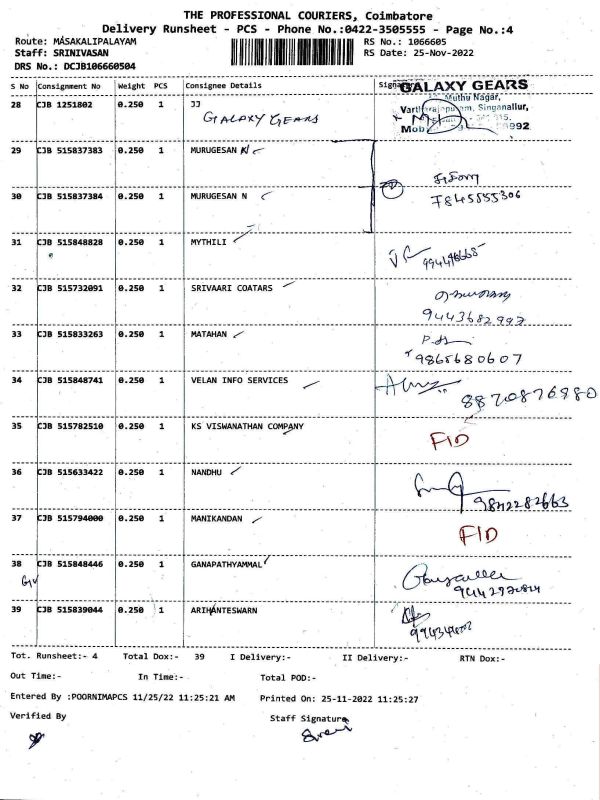 THE PROFESSIONAL COURIERS, Coimbatore
Delivery Runsheet - PCS - Phone No.:0422-3505555 - Page No.:4
Route: MASAKALIPALAYAM RS No.: 1066605
Staff: SRINIVASAN RS Date: 25-Nov-2022
DRS No.: DCJB106660504
S No Consignment No Weight PCS Consignee Details
GALAXY GEARS
28 CJB 1251802 0.250 1 JJ
Muthu Nagar,
GALAXY GEARS
Singanallur,
29 CJB 515837383 0.250 1 MURUGESAN N
30 CJB 515837384 0.250 1 MURUGESAN N
7845555306
31 CJB 515848828 0.250 1 MYTHILI
32 CJB 515732091 0.250 1 SRIVAARI COATARS
9443682997
33 CJB 515833263 0.250 1 MATAHAN
9865680607
34 CJB 515848741 0.250 1 VELAN INFO SERVICES
8870876980
35 CJB 515782510 0.250 1 KS VISWANATHAN COMPANY
FID
36 CJB 515633422 0.250 1 NANDHU
9842282663
37 CJB 515794000 0.250 1 MANIKANDAN
FID
38 CJB 515848446 0.250 1 GANAPATHYAMMAL
39 CJB 515839044 0.250 1 ARIHANTESWARN
Tot. Runsheet:- 4 Total Dox:- 39 I Delivery:- II Delivery:- RTN Dox:-
Out Time:- In Time:- Total POD:-
Entered By :POORNIMAPCS 11/25/22 11:25:21 AM Printed On: 25-11-2022 11:25:27
Verified By Staff Signature